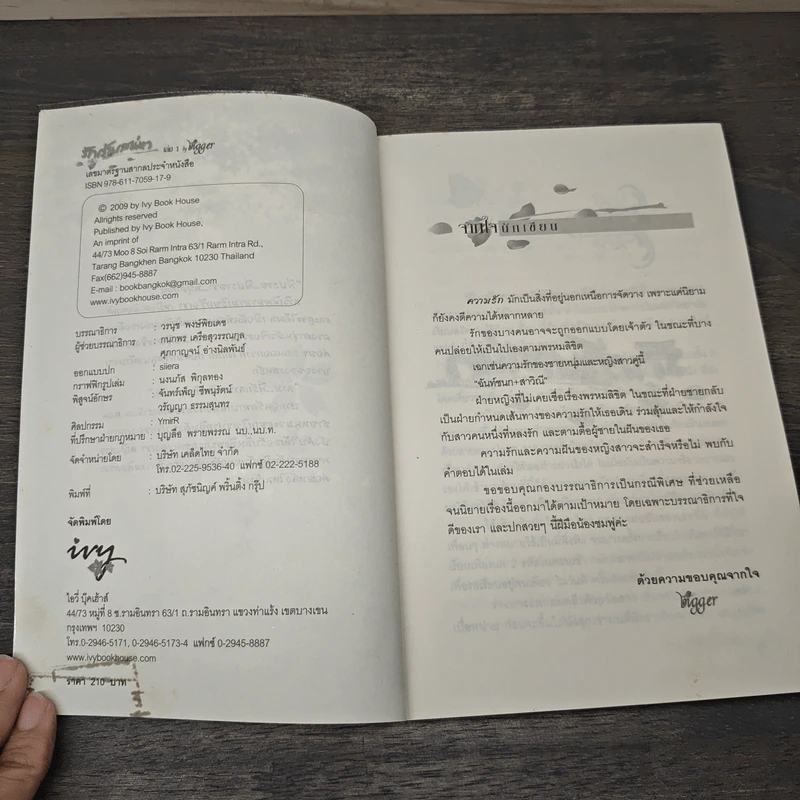 เล่ม 1 by Bigger
เลขมาตรฐานสากลประจำหนังสือ
ISBN 978-611-7059-17-9
© 2009 by Ivy Book House
Allrights reserved
Published by Ivy Book House,
An imprint of
44/73 Moo 8 Soi Rarm Intra 63/1 Rarm Intra Rd.,
Tarang Bangkhen Bangkok 10230 Thailand
Fax(662)945-8887
E-mail : bookbangkok@gmail.com
www.ivybookhouse.com
บรรณาธิการ : วรนุช พงษ์พิอเดช
ผู้ช่วยบรรณาธิการ : กนกพร เครือสุวรรณกุล
ศุภกาญจน์ อ่างนิลพันธ์
ออกแบบปก : siiera
กราฟฟิกรูปเล่ม : นงนภัส พิกุลทอง
พิสูจน์อักษร : จันทร์เพ็ญ ชีพนุรัตน์
วรัญญา ธรรมสุนทร
ศิลปกรรม : YmirR
ที่ปรึกษาฝ่ายกฎหมาย : บุญลือ พรายพรรณ นบ.,นบ.ท.
จัดจำหน่ายโดย : บริษัท เคล็ดไทย จำกัด
โทร.02-225-9536-40 แฟกซ์ 02-222-5188
พิมพ์ที่ : บริษัท สุภัชนิญค์ พริ้นติ้ง กรุ๊ป
จัดพิมพ์โดย
ivy
ไอวี่ บุ๊คเฮ้าส์
44/73 หมู่ที่ 8 ซ.รามอินทรา 63/1 ถ.รามอินทรา แขวงท่าแร้ง เขตบางเขน
กรุงเทพฯ 10230
โทร.0-2946-5171, 0-2946-5173-4 แฟกซ์ 0-2945-8887
www.ivybookhouse.com
ราคา 210 บาท
จากใจนักเขียน
ความรัก มักเป็นสิ่งที่อยู่นอกเหนือการจัดวาง เพราะแค่นิยาม
ก็ยังคงตีความได้หลากหลาย
รักของบางคนอาจจะถูกออกแบบโดยเจ้าตัว ในขณะที่บาง
คนปล่อยให้เป็นไปเองตามพรหมลิขิต
เฉกเช่นความรักของชายหนุ่มและหญิงสาวคู่นี้
“ฉันท์ชนก+สาวิณี”
ฝ่ายหญิงที่ไม่เคยเชื่อเรื่องพรหมลิขิต ในขณะที่ฝ่ายชายกลับ
เป็นฝ่ายกำหนดเส้นทางของความรักให้เธอเดิน ร่วมลุ้นและให้กำลังใจ
กับสาวคนหนึ่งที่หลงรัก และตามตื้อผู้ชายในฝันของเธอ
ความรักและความฝันของหญิงสาวจะสำเร็จหรือไม่ พบกับ
คำตอบได้ในเล่ม
ขอขอบคุณกองบรรณาธิการเป็นกรณีพิเศษ ที่ช่วยเหลือ
จนนิยายเรื่องนี้ออกมาได้ตามเป้าหมาย โดยเฉพาะบรรณาธิการที่ใจ
ดีของเรา และปกสวยๆ นี้ฝีมือน้องชมพู่ค่ะ
ด้วยความขอบคุณจากใจ
Bigger